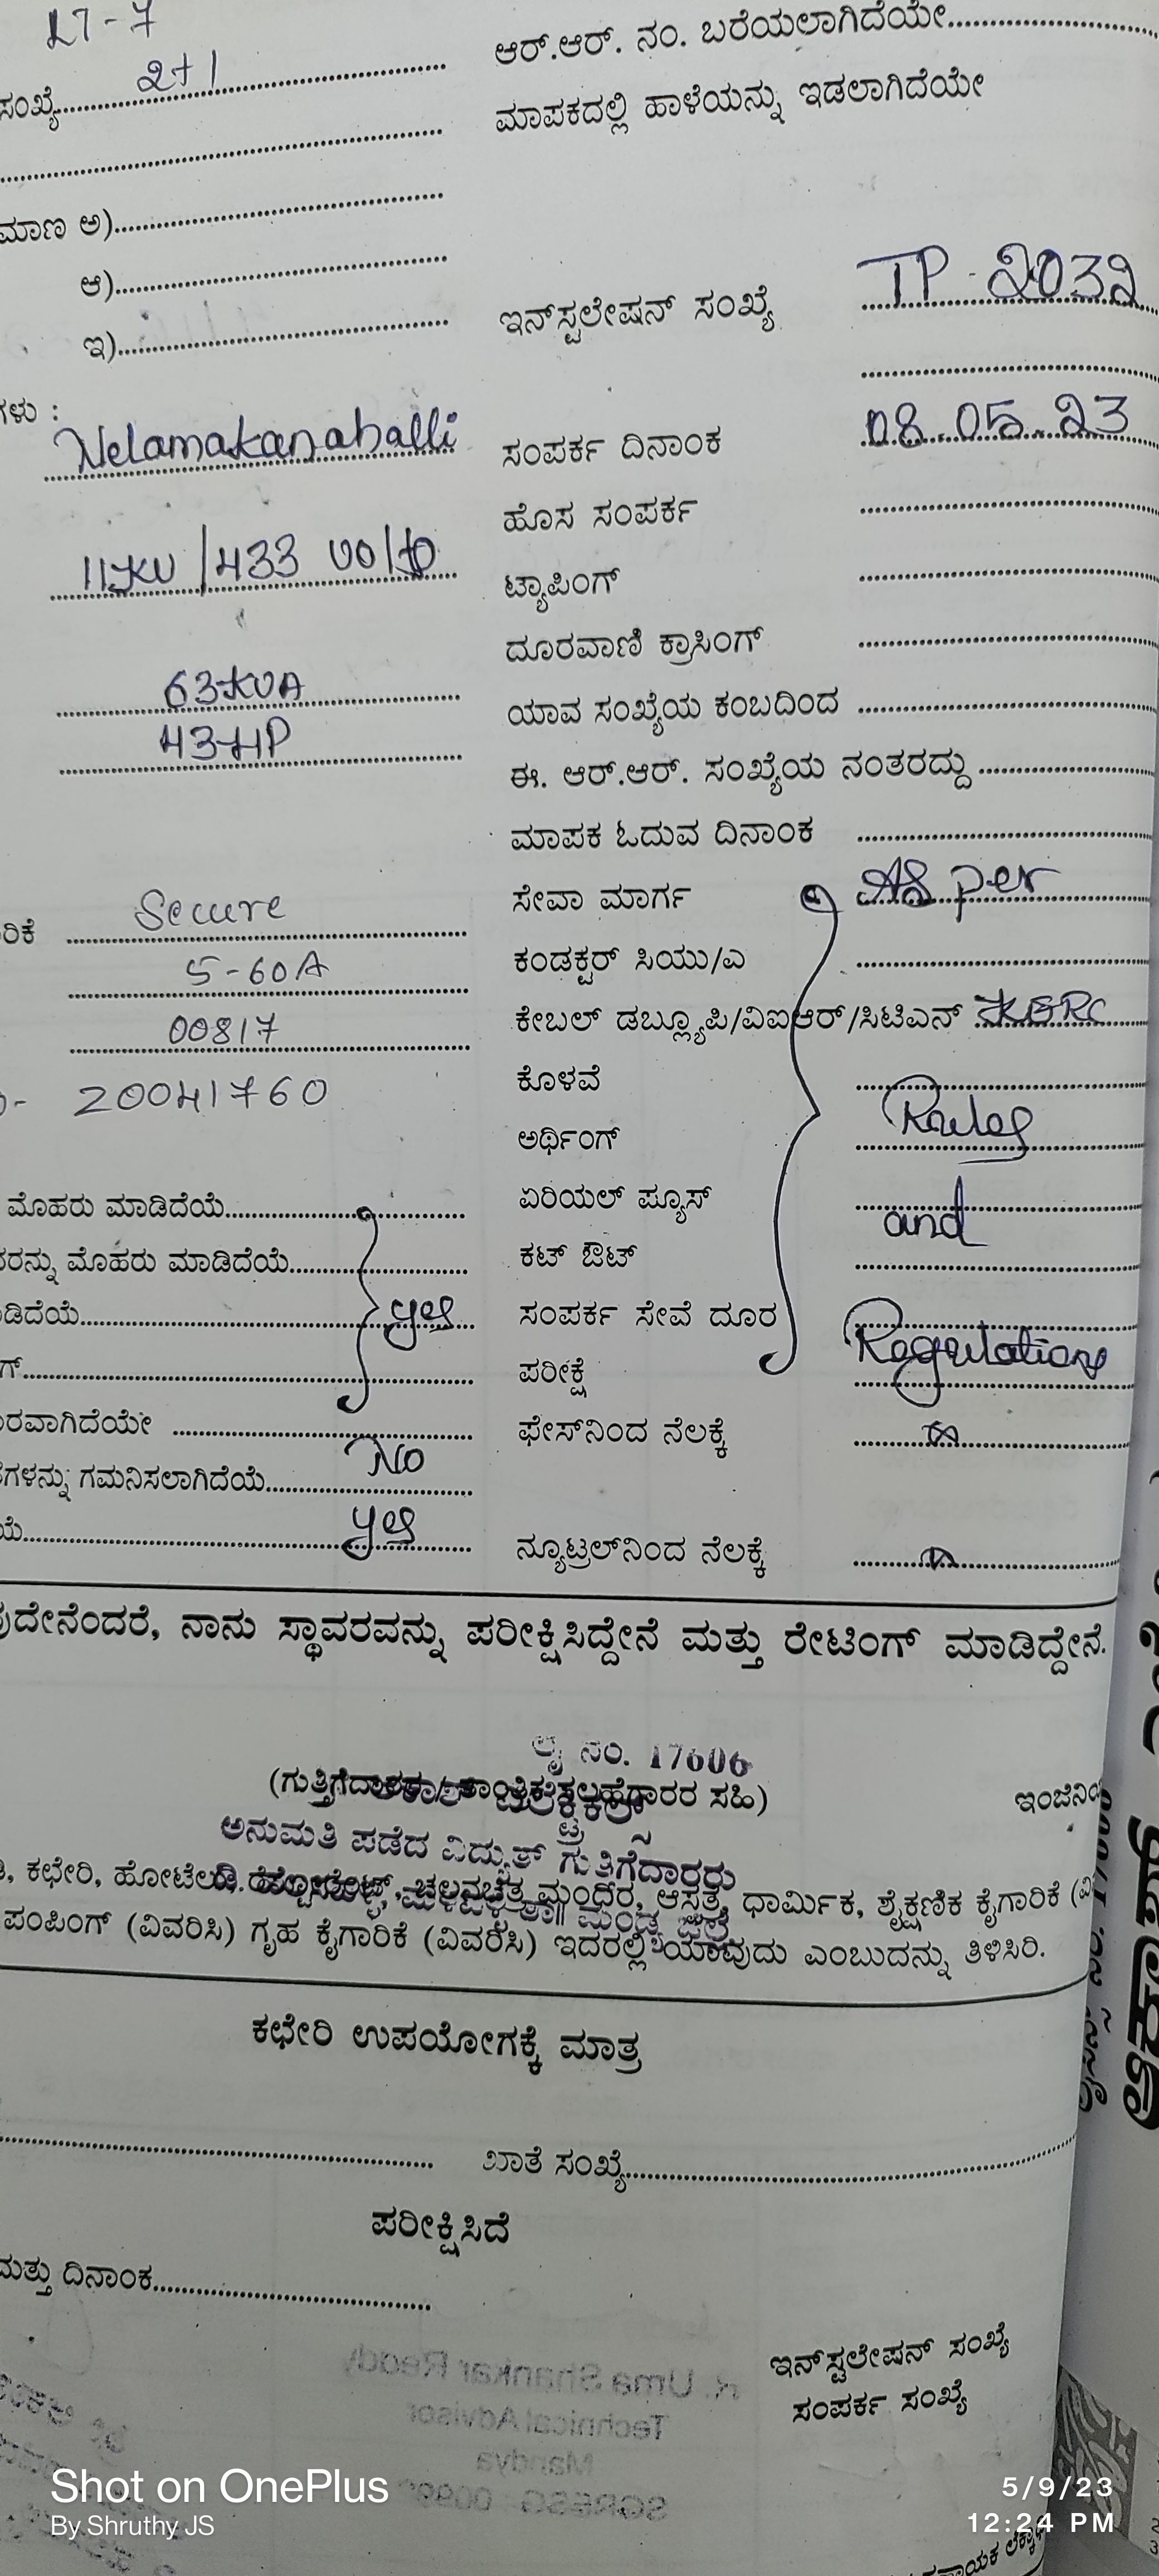 LT-7
ಸಂಖ್ಯೆ 2+1
ಆರ್.ಆರ್. ನಂ. ಬರೆಯಲಾಗಿದೆಯೇ
ಮಾಪಕದಲ್ಲಿ ಹಾಳೆಯನ್ನು ಇಡಲಾಗಿದೆಯೇ
ಮಾಣ ಅ)
ಆ)
ಇ)
ಇನ್‌ಸ್ಟಲೇಷನ್ ಸಂಖ್ಯೆ TP-2032
ಗಳು :
Nelamakanahalli
ಸಂಪರ್ಕ ದಿನಾಂಕ 08.05.23
ಹೊಸ ಸಂಪರ್ಕ
11KV/433 Volts
ಟ್ಯಾಪಿಂಗ್
ದೂರವಾಣಿ ಕ್ರಾಸಿಂಗ್
63KVA
ಯಾವ ಸಂಖ್ಯೆಯ ಕಂಬದಿಂದ
43HP
ಈ. ಆರ್.ಆರ್. ಸಂಖ್ಯೆಯ ನಂತರದ್ದು
ಮಾಪಕ ಓದುವ ದಿನಾಂಕ
ರಿಕೆ Secure
ಸೇವಾ ಮಾರ್ಗ As per
5-60A
ಕಂಡಕ್ಟರ್ ಸಿಯು/ಎ
00817
ಕೇಬಲ್ ಡಬ್ಲ್ಯೂಪಿ/ವಿಐಆರ್/ಸಿಟಿಎನ್ KERC
20041760
ಕೊಳವೆ
ಅರ್ಥಿಂಗ್ Rules
ಮೊಹರು ಮಾಡಿದೆಯೆ
ಏರಿಯಲ್ ಪ್ಯೂಸ್ and
ರನ್ನು ಮೊಹರು ಮಾಡಿದೆಯೆ
ಕಟ್ ಔಟ್
ಡಿದೆಯೆ yes
ಸಂಪರ್ಕ ಸೇವೆ ದೂರ
ಗ್
ಪರೀಕ್ಷೆ Regulations
ರವಾಗಿದೆಯೇ
ಫೇಸ್‌ನಿಂದ ನೆಲಕ್ಕೆ
ಗಳನ್ನು ಗಮನಿಸಲಾಗಿದೆಯೆ No
ಯೆ yes
ನ್ಯೂಟ್ರಲ್‌ನಿಂದ ನೆಲಕ್ಕೆ
ವುದೇನೆಂದರೆ, ನಾನು ಸ್ಥಾವರವನ್ನು ಪರೀಕ್ಷಿಸಿದ್ದೇನೆ ಮತ್ತು ರೇಟಿಂಗ್ ಮಾಡಿದ್ದೇನೆ.
ಲೈ ನಂ. 17606
(ಗುತ್ತಿಗೆದಾರರ/ತಾಂತ್ರಿಕ ಸಲಹೆಗಾರರ ಸಹಿ)
ಇಂಜಿನಿಯ
ಅನುಮತಿ ಪಡೆದ ವಿದ್ಯುತ್ ಗುತ್ತಿಗೆದಾರರು
ಕಛೇರಿ, ಹೋಟೆಲು, ಚಲನಚಿತ್ರ ಮಂದಿರ, ಆಸ್ಪತ್ರೆ, ಧಾರ್ಮಿಕ, ಶೈಕ್ಷಣಿಕ ಕೈಗಾರಿಕೆ
ಪಂಪಿಂಗ್ (ವಿವರಿಸಿ) ಗೃಹ ಕೈಗಾರಿಕೆ (ವಿವರಿಸಿ) ಇದರಲ್ಲಿ ಯಾವುದು ಎಂಬುದನ್ನು ತಿಳಿಸಿರಿ.
ಕಛೇರಿ ಉಪಯೋಗಕ್ಕೆ ಮಾತ್ರ
ಖಾತೆ ಸಂಖ್ಯೆ
ಪರೀಕ್ಷಿಸಿದೆ
ಮತ್ತು ದಿನಾಂಕ
ಇನ್‌ಸ್ಟಲೇಷನ್ ಸಂಖ್ಯೆ
ಸಂಪರ್ಕ ಸಂಖ್ಯೆ
Uma Shankar Reddy
Technical Advisor
Mandya
Shot on OnePlus
By Shruthy JS
5/9/23
12:24 PM